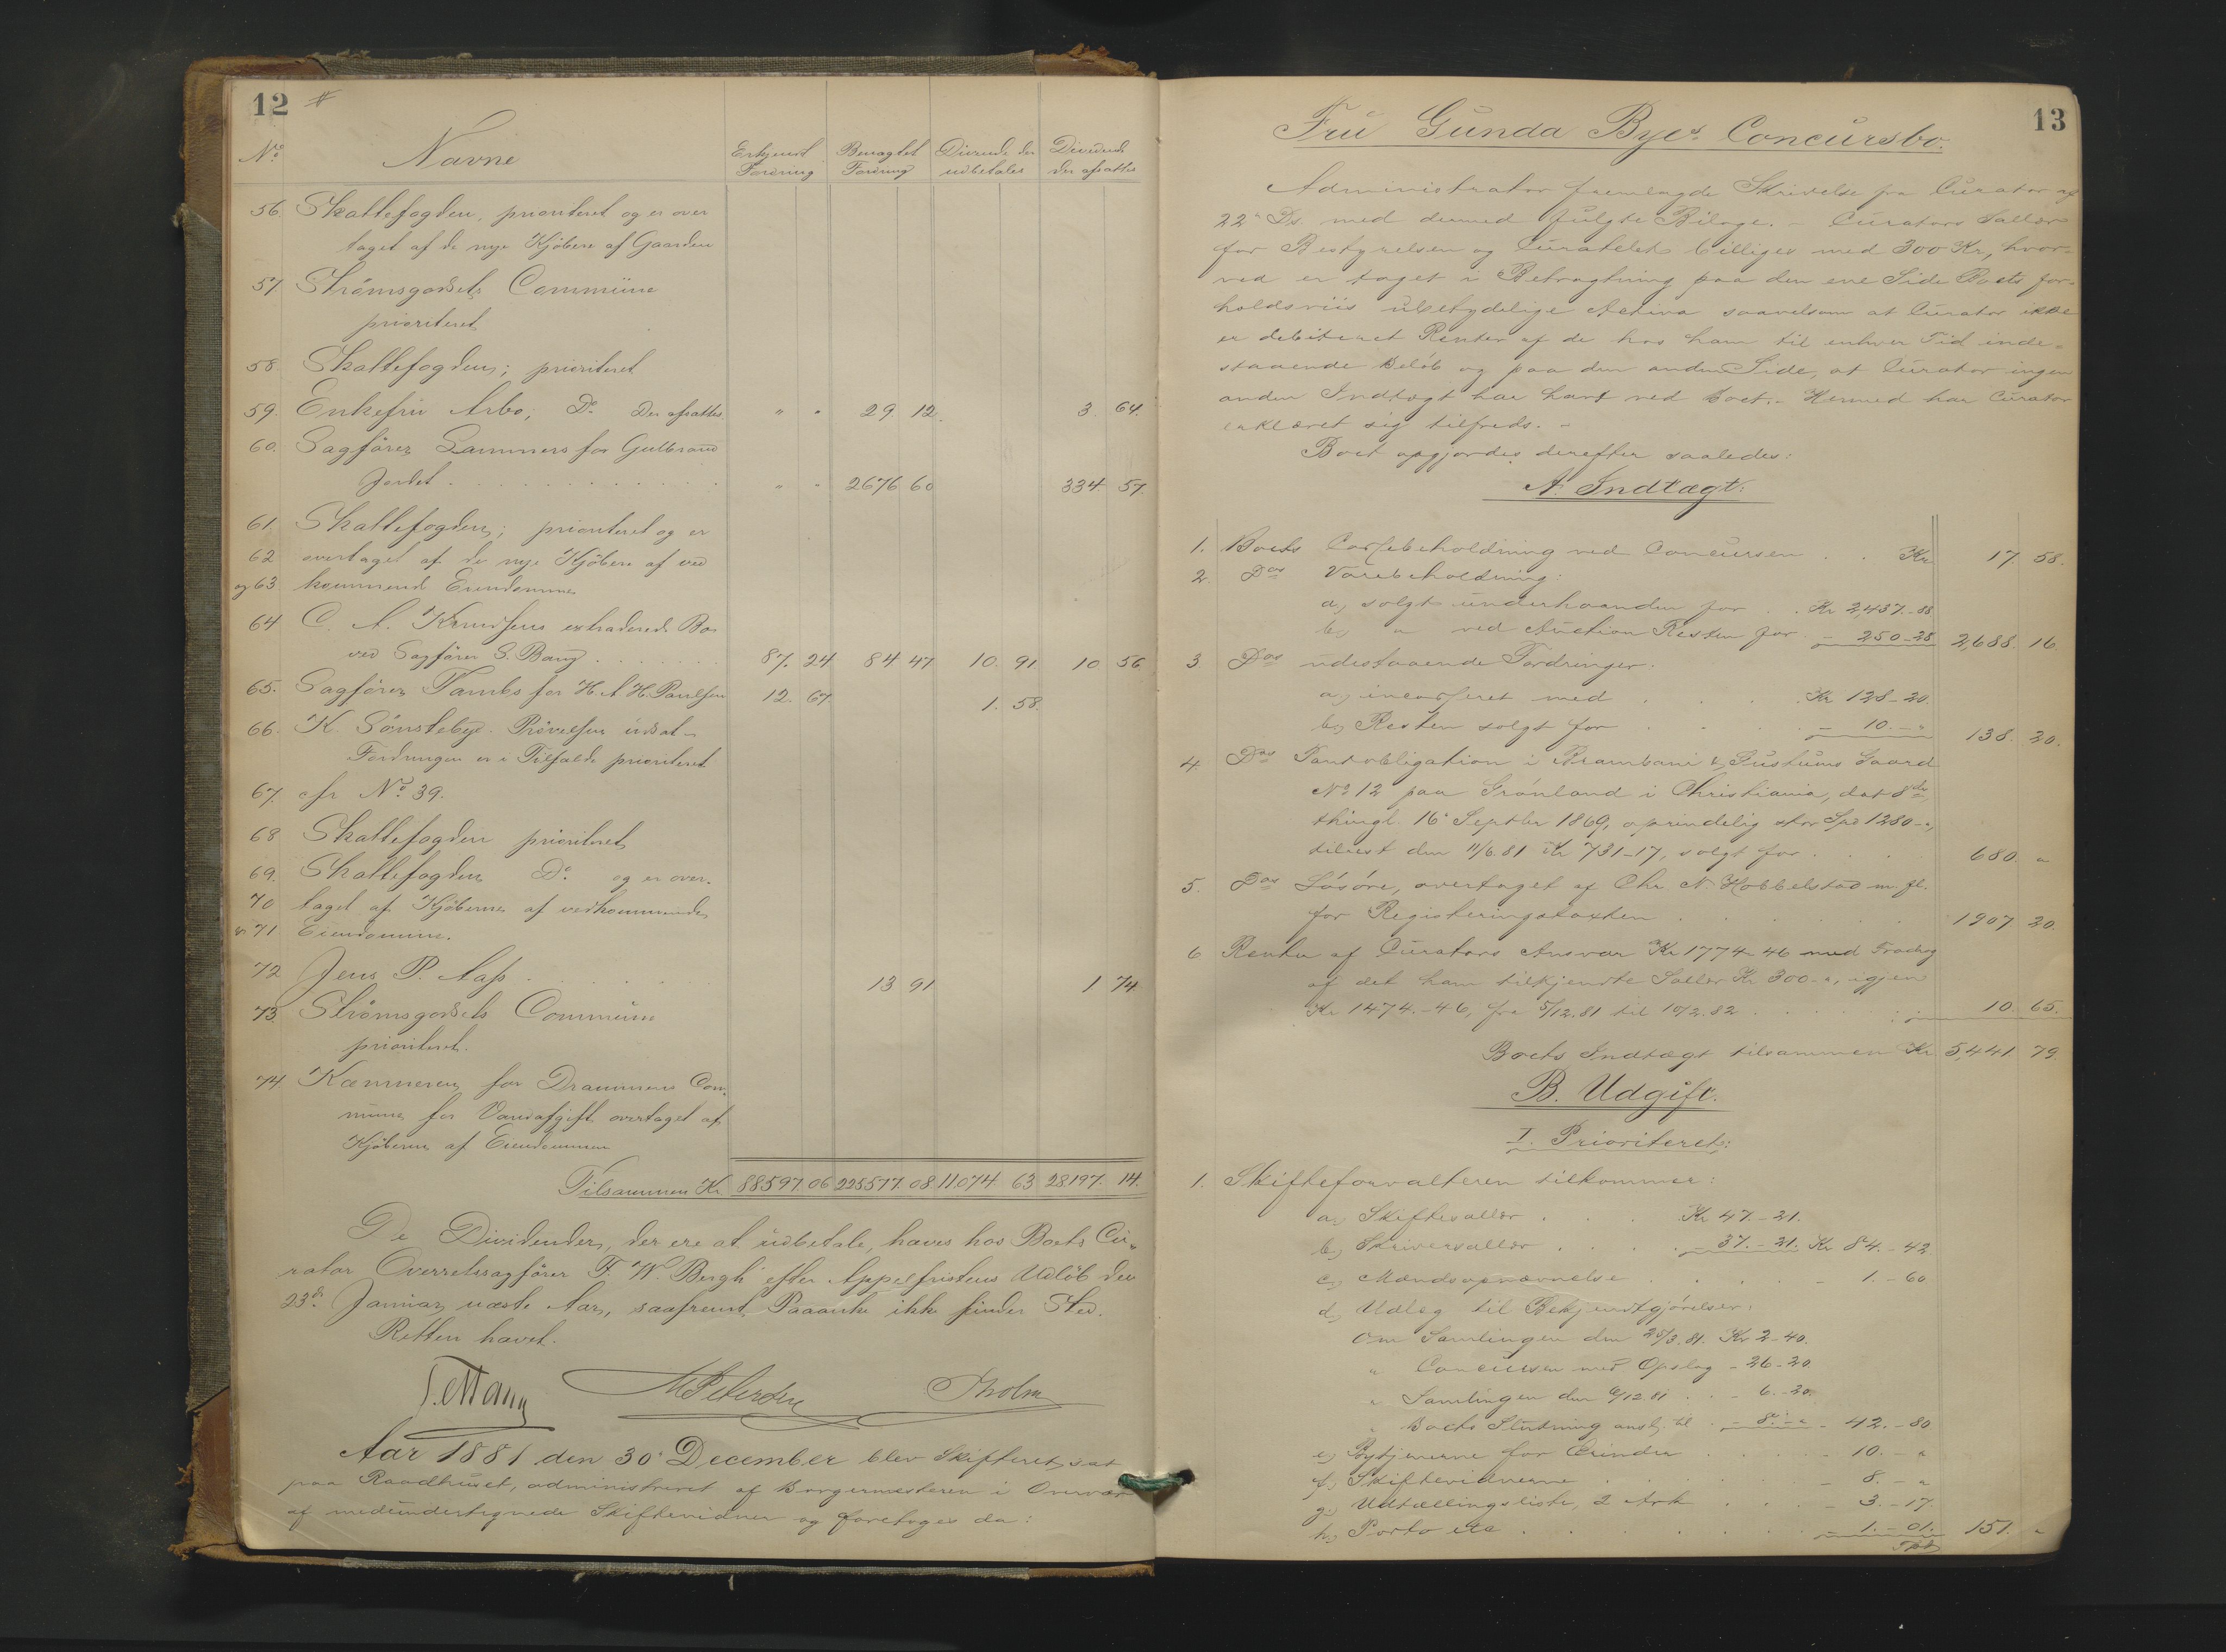 12
No. Navne Erkjendt Fordring Benægtet Fordring Dividende der udbetales Dividende der afsættes
56. Skattefogden, prioriteret og er over
taget af de nye Kjöbere af Gaarden
57. Strömsgodsets Commüne
prioriteret
58. Skattefogden; prioriteret
59. Enkefrü Arbo; Do. Der afsættes " " 29. 12. 3. 64.
60. Sagförer Lammers for Gulbrand
Jordet . . . " " 2676 60 334. 57.
61. Skattefogden; prioriteret og er
62 overtaget af de nye Kjöbere af ved
og 63 kommende Eiendomme
64 C. A. Knudsens extraderede Bo
ved Sagförer S. Bang . . . 87. 24 84. 47 10. 91 10 56
65. Sagförer Tambs for H. A. H. Paulsen 12. 67. 1. 58.
66. K. Sönsteby. Prövelsen udsat -
Fordringen er i Tilfælde prioriteret
67. cfr No. 39.
68 Skattefogden prioriteret
69. Skattefogden Do. og er over-
70 taget af Kjöberne af vedkommende
& 71 Eiendomme.
72 Jens P. Aass . . . 13 91 1 74
73. Strömsgodsets Commüne
prioriteret.
74. Kæmneren for Drammens Com-
müne, for Vandafgift overtaget af
Kjöberne af Eiendommen
Tilsammen Kr. 88597. 06 225577. 08 11.074. 63 28197. 14.
De Dividender, der ere at udbetale, haves hos Boets Cü-
rator Overretssagförer F. W. Bergh efter Appelfristens Udlöb den
23de Januar næste Aar, saafremt Paaanke ikke finder Sted.
Retten hævet.
M Petersen Tholm
Aar 1881 den 30. December blev Skifteret sat
paa Raadhüset, administreret af Borgermesteren i Overvær
af medündertegnede Skiftevidner og foretoges da:
13
Frü Günda Byes Concürsbo.
Administrator fremlagde Skrivelse fra Cürator af
22. Ds. med dermed fülgte Bilage. - Cürators Sallær
for Bestyrelsen og Cüratelet billiges med 300 Kr, hvor-
ved er taget i Betragtning paa den ene Side Boets for-
holdsviis übetydelige Activa saavelsom at Cürator ikke
er debiteret Renter af de hos ham til enhver Tid inde-
staaende Beløb og paa den anden Side, at Cürator ingen
anden Indtægt har havt ved Boet. - Hermed har Cürator
erklæret sig tilfreds. -
Boet opgjordes derefter saaledes:
A. Indtægt:
1. Boets Cassebeholdning ved Concürsen . . Kr 17. 58.
2. Dos Varebeholdning:
a, solgt ünderhaanden for . . Kr 2,437.-88
b, " ved Aüction Resten for - 250-28 2,688. 16.
3. Dos üdestaaende Fordringer:
a, incasseret med . . . Kr 128-20.
b, Resten solgt for . . . - 10. - " 138. 20.
4. Dos Pantobligation i Gaard
No 12 paa Grönland i Christiania, dat 8de,
thingl. 16. Septbr 1869, oprindelig stor Spd 1280-",
tilrest den 11/6.81 Kr 731-17, solgt for . . . 680. "
5. Dos Løsøre, overtaget af Chr. N. Hobbelstad m. fl.
for Registeringstaxten . . . 1907. 20.
6 Renter af Cürators Ansvar Kr 1774-46 med Fradrag
af det ham tilkjendte Sallær Kr 300-", igjen
Kr 1474.-46, fra 5/12.81 til 10/2.82 . . . 10. 65.
Boets Indtægt tilsammen Kr 5,441. 79.
B. Udgift.
I. Prioriteret:
1. Skifteforvalteren tilkommer:
a, Skiftesallær . . . Kr 47.-21.
b, Skriversallær . . . 37.-21. Kr 84.-42
c, Mændsopnævnelse . . . - 1.-60
d, Udlæg til Bekjendtgjørelser:
Om Samlingen den 25/3.81. Kr 2-40.
" Concürsen med Opslag - 26-20
" Samlingen den 6/12.81 . . . 6.-20.
" Boets Slütning ansl. til . - 8. - " - 42.-80
e, Bytjenerne for Ærinder . . . - 10. - "
f, Skiftevidnerne . . . - 8. - "
g, Udtællingsliste, 2 Ark . . . - 3.-17.
h, Porto etc . . . - 1.-01. 151. "